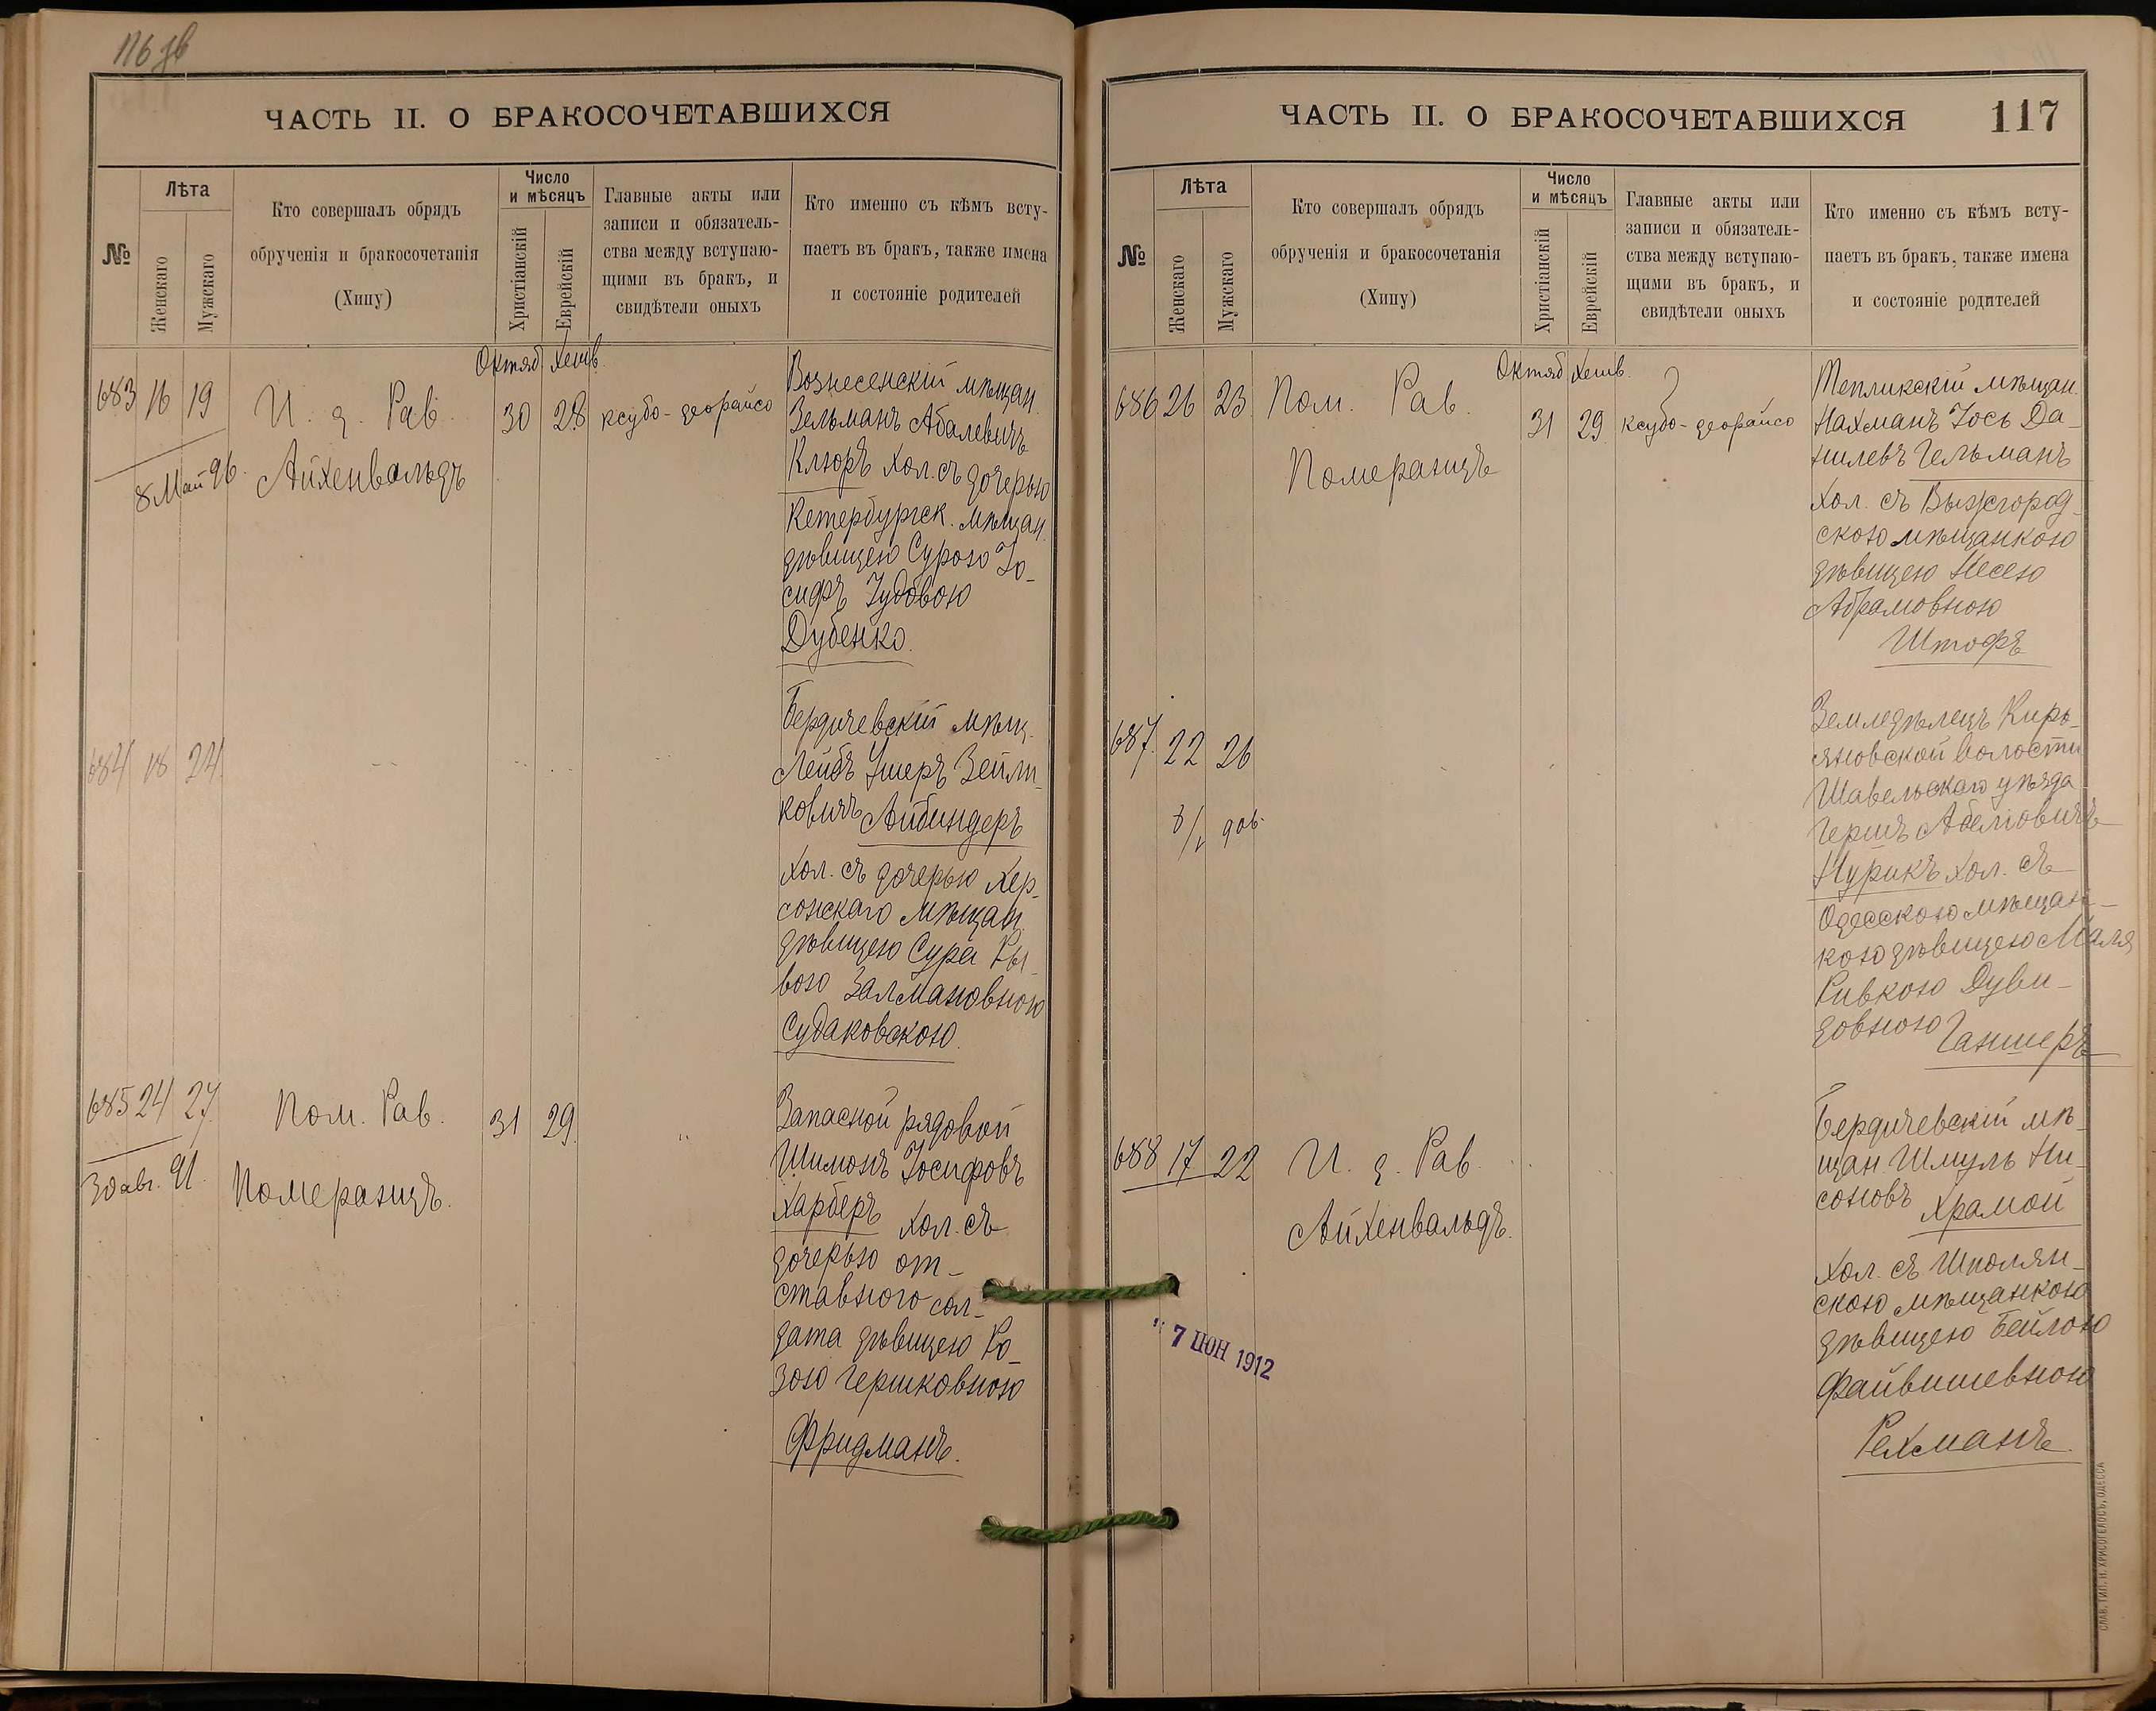 116 зв
ЧАСТЬ II. О БРАКОСОЧЕТАВШИХСЯ
№
Лѣта
Женскаго
Мужскаго
Кто совершалъ обрядъ
обрученія и бракосочетанія
(Хипу)
Число
и мѣсяцъ
Христіанскій
Еврейскій
Главные акты или
записи и обязатель-
ства между вступаю-
щими въ бракъ, и
свидѣтели оныхъ
Кто именно съ кѣмъ всту-
паетъ въ бракъ, также имена
и состояніе родителей
Октяб. Хешв.
683 16 19 И. д. Рав. 30 28 ксубо-деорайсо
8 Май 96. Айхенвальдъ
Вознесенскій мѣщан.
Зельманъ Абалевичъ
Клюръ хол. съ дочерью
Петербургск. мѣщан.
дѣвицею Сурою Іо-
сифъ Іудовою
Дубенко.
684 18 24
Бердичевскій мѣщ.
Лейбъ Ушеръ Зейли-
ковичъ Айбиндеръ
хол. съ дочерью Хер-
сонскаго мѣщан.
дѣвицею Сура Ры-
вою Залмановною
Судаковскою.
685 24 27. Пом. Рав. 31 29. "
30 авг. 91. Померанцъ.
Запасной рядовой
Шимонъ Іосифовъ
Харберъ хол. съ
дочерью от-
ставного сол-
дата дѣвицею Ро-
зою Гершковною
Фридманъ.
ЧАСТЬ II. О БРАКОСОЧЕТАВШИХСЯ 117
№
Лѣта
Женскаго
Мужскаго
Кто совершалъ обрядъ
обрученія и бракосочетанія
(Хипу)
Число
и мѣсяцъ
Христіанскій
Еврейскій
Главные акты или
записи и обязатель-
ства между вступаю-
щими въ бракъ, и
свидѣтели оныхъ
Кто именно съ кѣмъ всту-
паетъ въ бракъ, также имена
и состояніе родителей
Октяб. Хешв.
686 26 23 Пом. Рав. 31 29. ксубо-деорайсо
Померанцъ
Тепликскій мѣщан.
Нахманъ Іось Да-
нилевъ Гельманъ
хол. съ Вышгород-
скою мѣщанкою
дѣвицею Несею
Абрамовною
Штофъ
687. 22 26
Земледѣлецъ Кирь-
яновской волости
Шавельскаго уѣзда
Гершъ Абелiовичъ
Нурикъ хол. съ
Одесскою мѣщан-
кою дѣвицею Маля
Ривкою Дуви-
довною Ганшеръ
688 17 22 И. д. Рав.
Айхенвальдъ.
Бердичевскій мѣ-
щан Шмуль Ни-
соновъ Храмой
хол. съ Шполян-
скою мѣщанкою
дѣвицею Бейлою
Файвишевною
Рехманъ.
7 ІЮН 1912
СЛАВ. ТИП. Н. ХРИСОГЕЛОСЪ, ОДЕССА